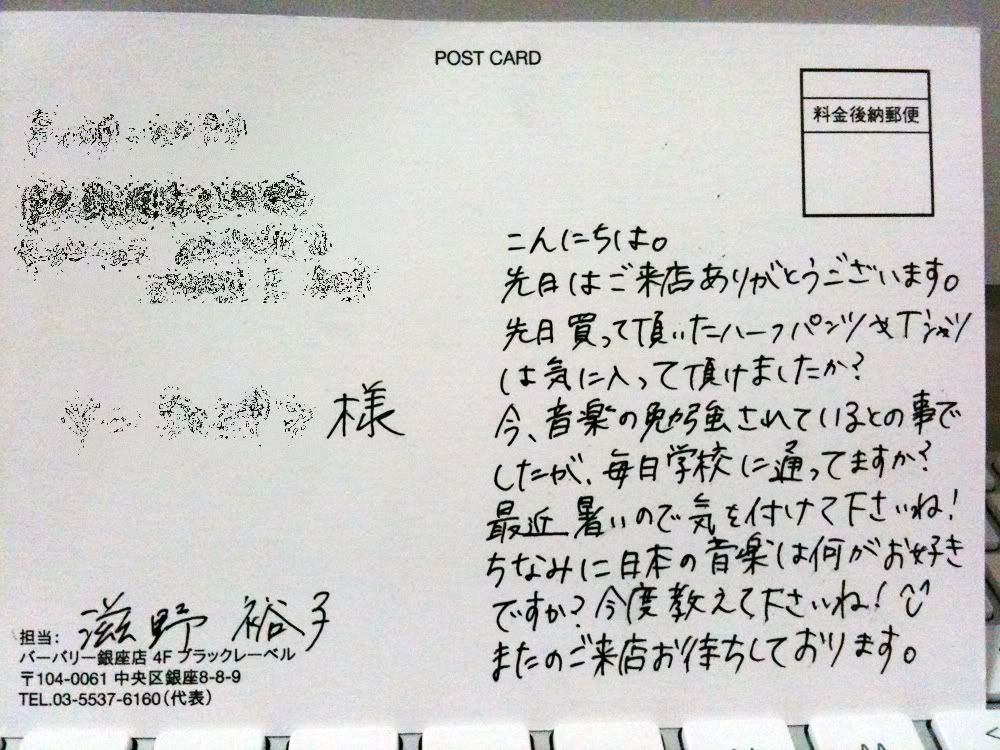 POST CARD
料金後納郵便
様
こんにちは。
先日はご来店ありがとうございます。
先日買って頂いたハーフパンツやTシャツ
は気に入って頂けましたか?
今、音楽の勉強されているとの事で
したが、毎日学校に通ってますか?
最近暑いので気を付けて下さいね!
ちなみに日本の音楽は何がお好き
ですか?今度教えて下さいね!
またのご来店お待ちしております。
担当: 滋野 裕子
バーバリー銀座店 4F ブラックレーベル
〒104-0061 中央区銀座8-8-9
TEL.03-5537-6160(代表)